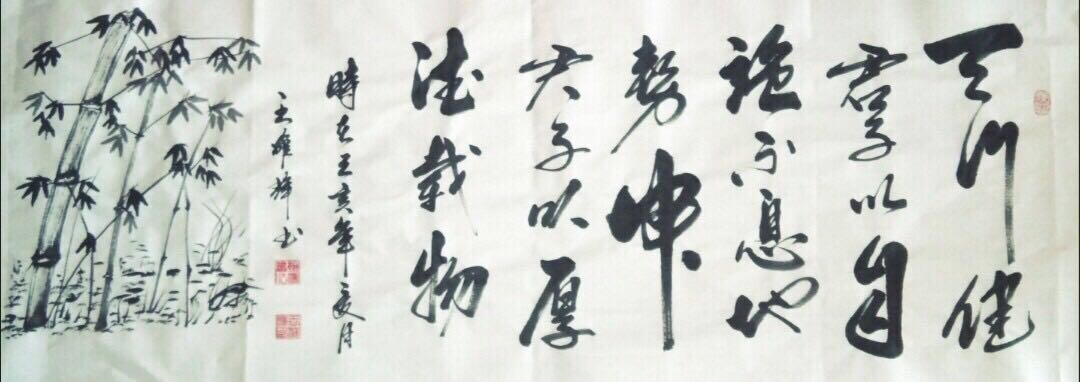 天行健
君子以自
強不息地
勢坤
君子以厚
德載物
時在壬亥年夏月
王雄輝书